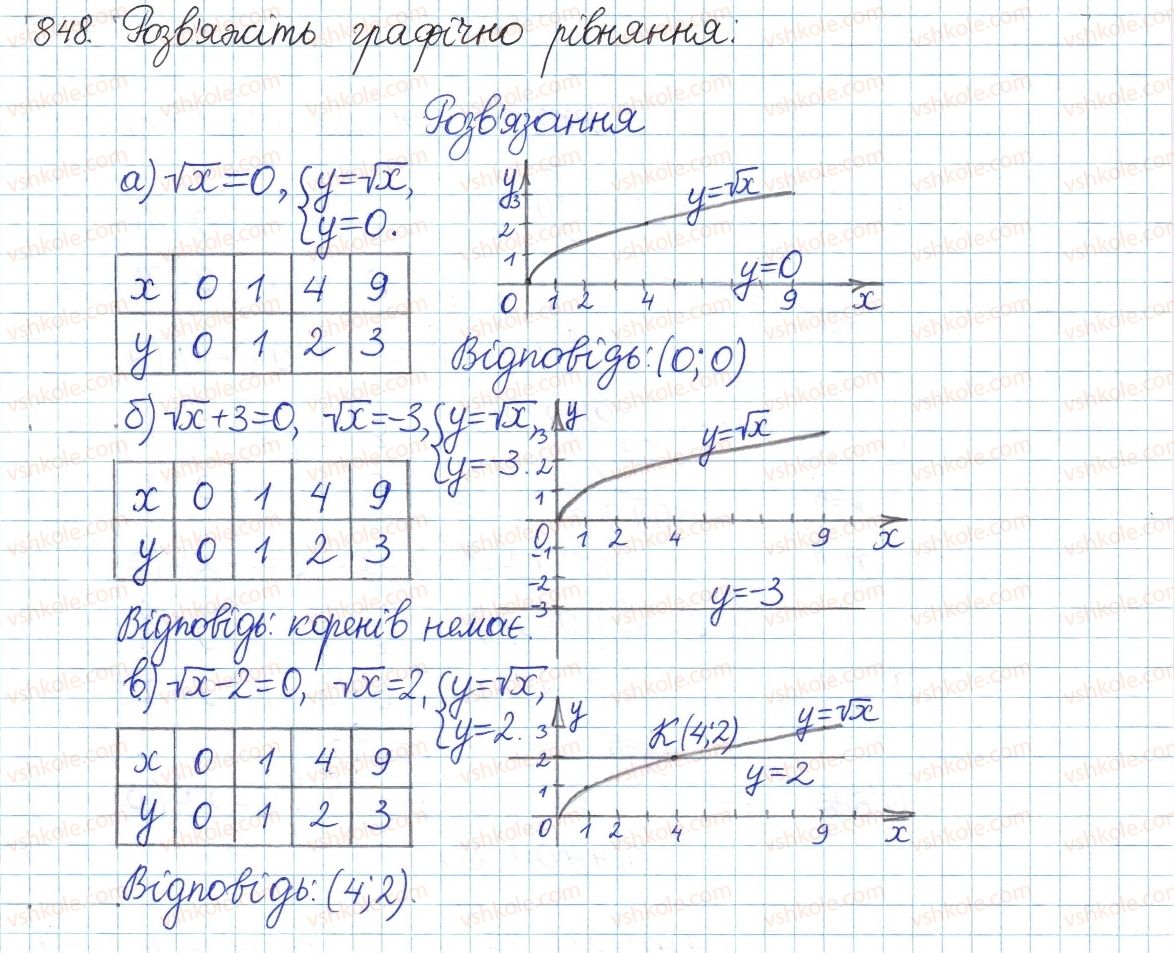 848. Розв'яжіть графічно рівняння:
Розв'язання
а) √x = 0, { y = √x,
y = 0.
x 0 1 4 9
y 0 1 2 3
y
3
2
1
0 1 2 4 9 x
y = √x
y = 0
Відповідь: (0; 0)
б) √x + 3 = 0, √x = -3, { y = √x,
y = -3.
x 0 1 4 9
y 0 1 2 3
y
3
2
1
0 1 2 4 9 x
-1
-2
-3
y = √x
y = -3
Відповідь: коренів немає.
в) √x - 2 = 0, √x = 2, { y = √x,
y = 2.
x 0 1 4 9
y 0 1 2 3
y
3
2
1
0 1 2 4 9 x
K (4; 2)
y = √x
y = 2
Відповідь: (4; 2).
vshkole.com